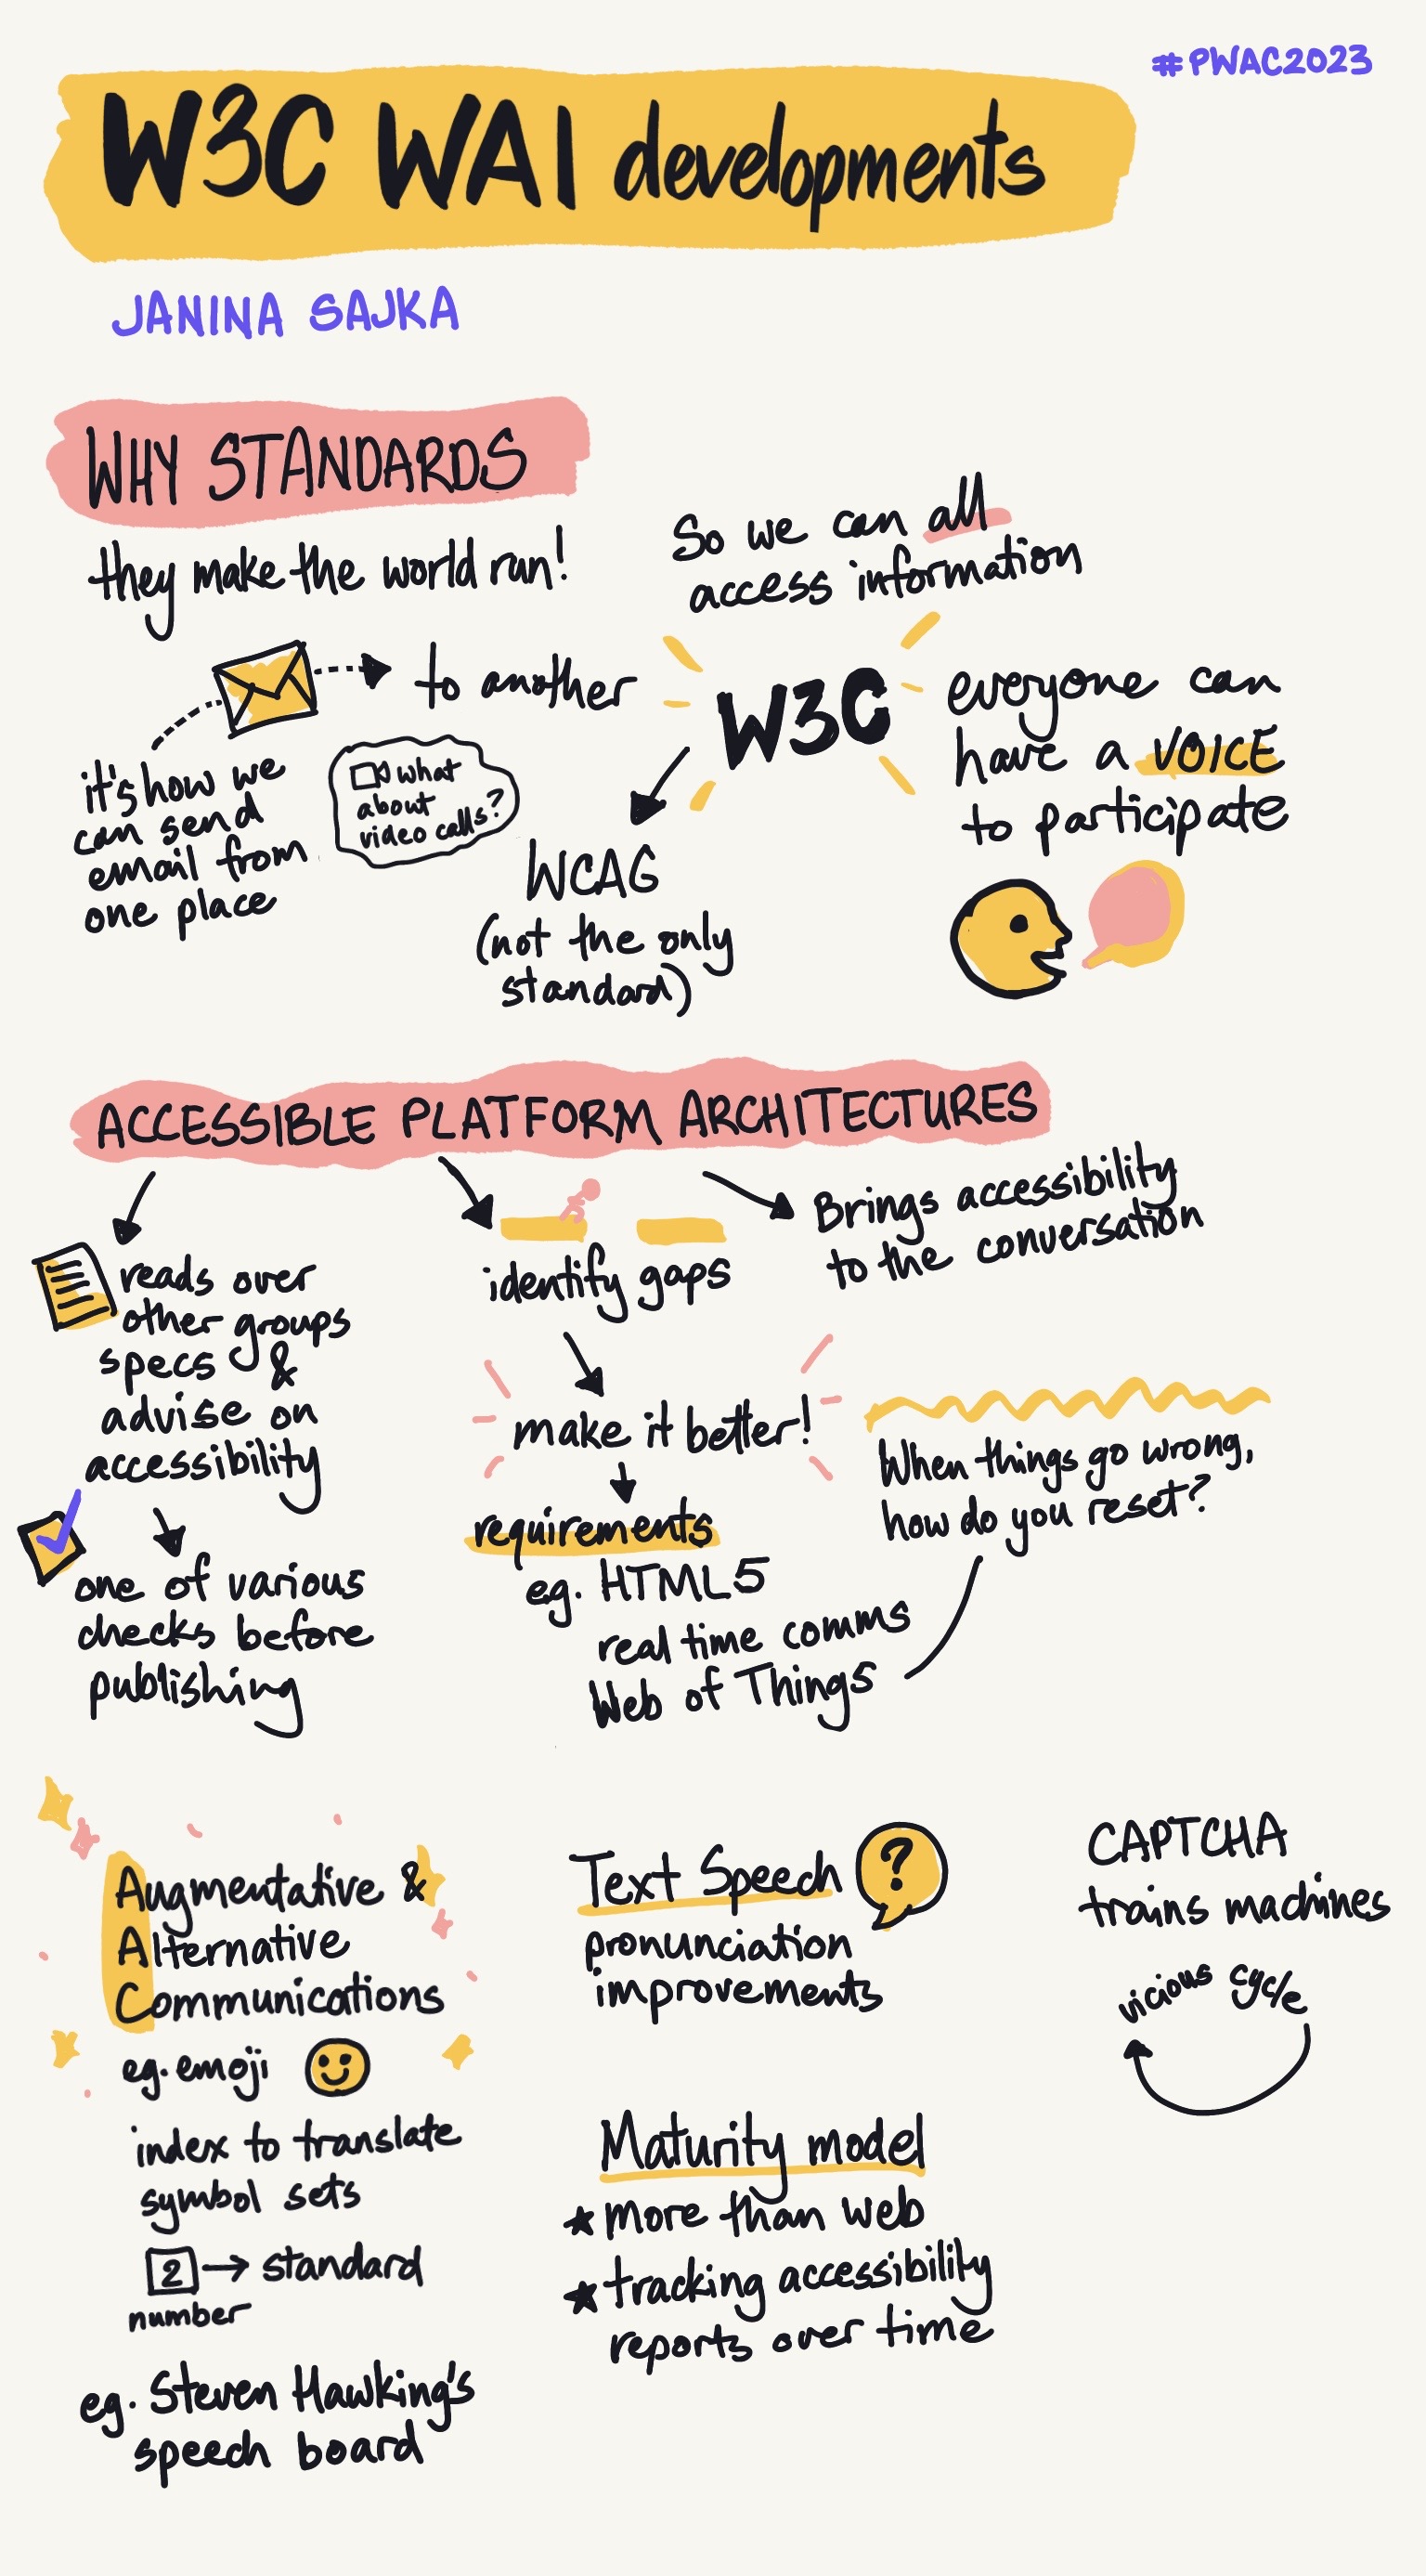 #PWAC2023
W3C WAI developments
JANINA SAJKA
WHY STANDARDS
they make the world run!
it's how we
can send
email from
one place
to another
what
about
video calls?
So we can all
access information
W3C
everyone can
have a VOICE
to participate
WCAG
(not the only
standard)
ACCESSIBLE PLATFORM ARCHITECTURES
reads over
other groups
specs &
advise on
accessibility
one of various
checks before
publishing
identify gaps
make it better!
requirements
eg. HTML5
real time comms
Web of Things
Brings accessibility
to the conversation
When things go wrong,
how do you reset?
Augmentative &
Alternative
Communications
eg. emoji
index to translate
symbol sets
2 → standard
number
eg. Steven Hawking's
speech board
Text Speech ?
pronunciation
improvements
Maturity model
★ more than web
★ tracking accessibility
reports over time
CAPTCHA
trains machines
vicious cycle